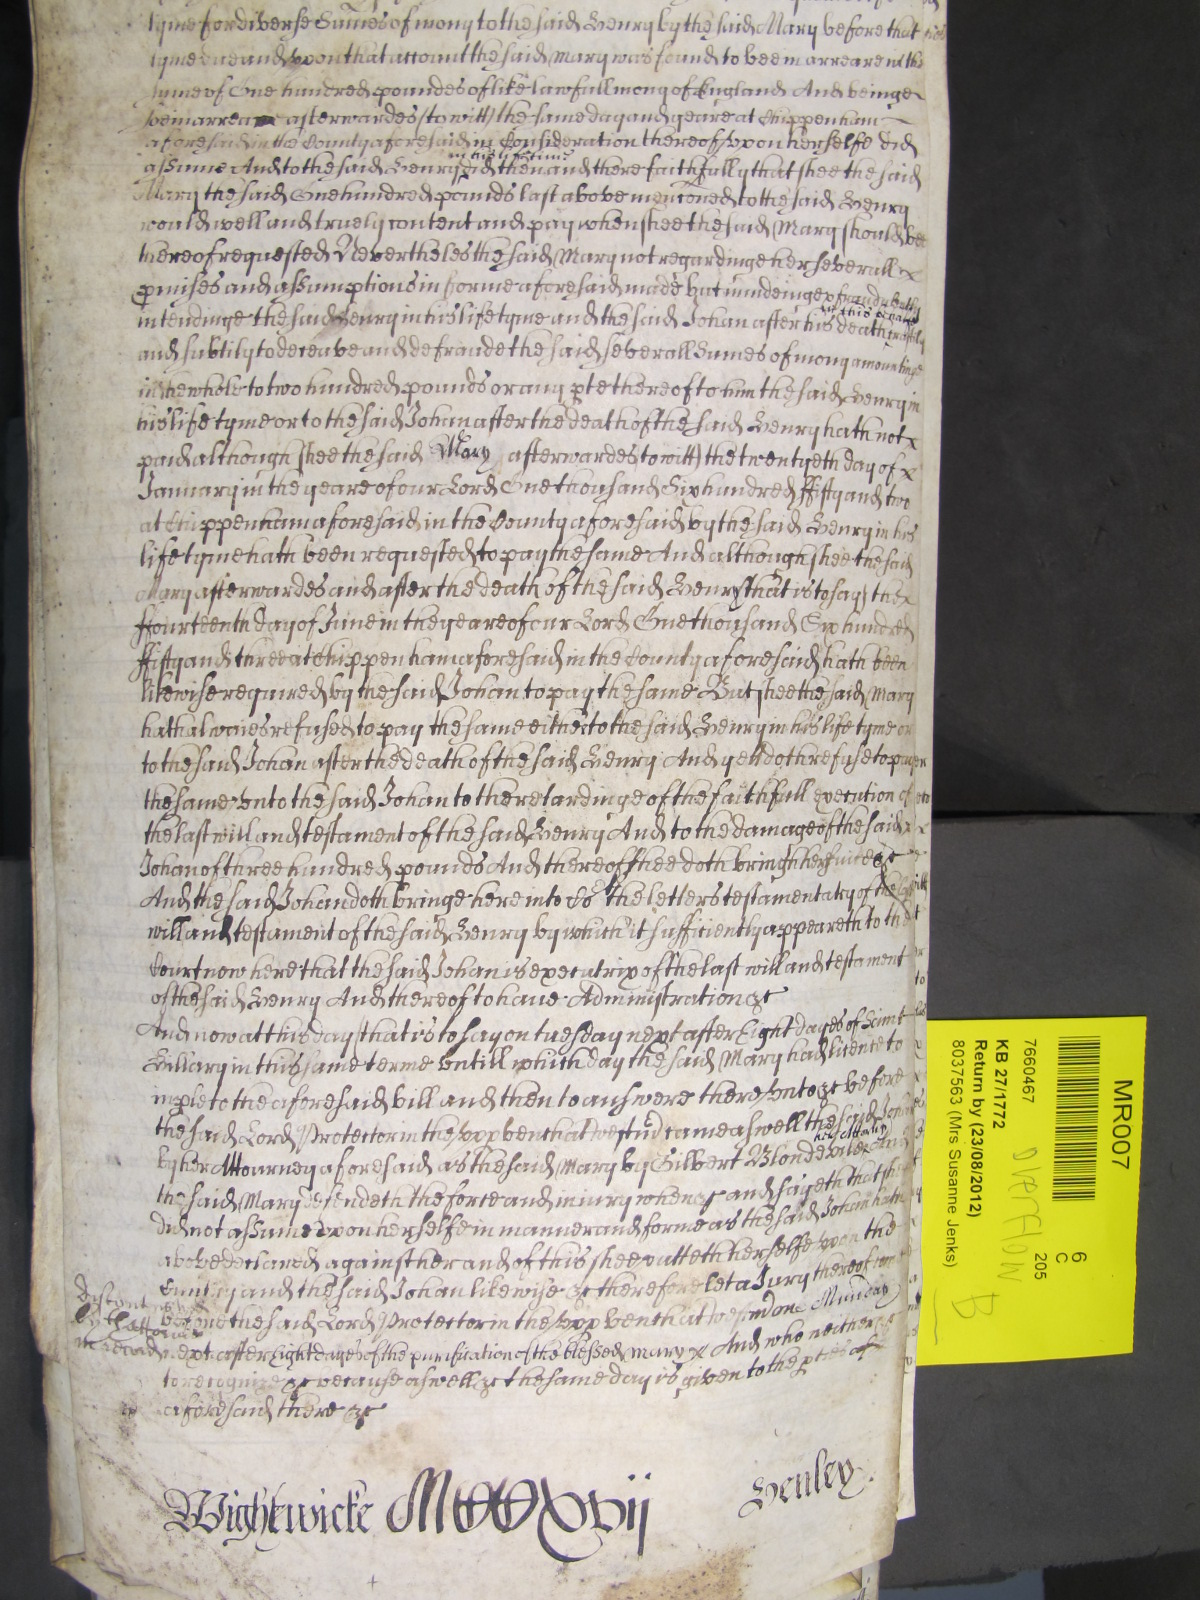 tyme for diverse Sumes of mony to the said Henry by the said Mary before that
tyme due and upon that accompt the said Mary was found to bee in arreare
tyme of One hundred poundes of like lawfull mony of England And beinge
soe in arreare afterwardes (to witt) the same day and yeare at Chippenham
aforesaid in the County aforesaid in Consideration thereof upon herselfe did
assume And to the said Henry in his lifetime did then and there faithfully that shee the said
Mary the said One hundred pounds last above mencioned to the said Henry
would well and truely content and pay when shee the said Mary should bee
thereof requested Neverthelesthe said Mary not regardinge her severall
pmises and assumptions in forme aforesaid made but mindeinge & fraudulently
intendinge the said Henry in his life tyme and the said Johan after his death in this behalfe craftily
and subtily to deceave and defraude the said severall Sumes of mony amountinge
in the whole to two hundred pounds or any pte thereof to him the said Henry in
his life tyme or to the said Johan after the death of the said Henry hath not
paid although shee the said Mary afterwardes (to witt) the twentyeth day of
January in the yeare of our Lord One thousand Six hundred ffifty and two
at Chippenham aforesaid in the County aforesaid by the said Henry in his
life tyme hath been requested to pay the same And although shee the said
Mary afterwardes and after the death of the said Henry (that is to say) the
ffourteenth day of June in the yeare of our Lord One thousand Six hundred
ffifty and three at Chippenham aforesaid in the County aforesaid hath been
likewise required by the said Johan to pay the same But shee the said Mary
hath alwaies refused to pay the same either to the said Henry in his life tyme or
to the said Johan after the death of the said Henry And yet doth refuse to pay
the same unto the said Johan to the retardinge of the faithfull execution of
the last will and testament of the said Henry And to the damage of the said
Johan of three hundred pounds And thereof shee doth bringe her suite &c
And the said Johan doth bringe here into Co the letters testamentary of the last
will and testament of the said Henry by which it sufficiently appeareth to the
Court now here that the said Johan is executrix of the last will and testament
of the said Henry And thereof to have Administration &c
And now at this day (that is to say on tuesday next after Eight dayes of Saint
Hillary in this same terme untill which day the said Mary had licence to
imple to the aforesaid bill and then to answere thereunto &c before
the said Lord Protector in the upp bench at Westm came as well the said Johan
by her Attourney aforesaid as the said Mary by Gilbert Blondevile her Attorney And
the said Mary defendeth the force and iniury when &c and sayeth that shee
did not assume upon herselfe in manner and forme as the said Johan hath
above declared against her and of this shee putteth herselfe upon the
Cuntry and the said Johan likewise &c therefore let a Jury thereof come
before the said Lord Protector in the upp bench at Westm on Munday
next after Eight dayes of the purification of the blessed Mary And who neither
to recognize &c because aswell &c the same day is given to the pties
aforesaid there &c
Wightwicke MCCCXvij Henley
MR007
6
C
205
7660467
OVERFLOW
KB 27/1772
Return by (23/08/2012)
8037563 (Mrs Susanne Jenks)
B